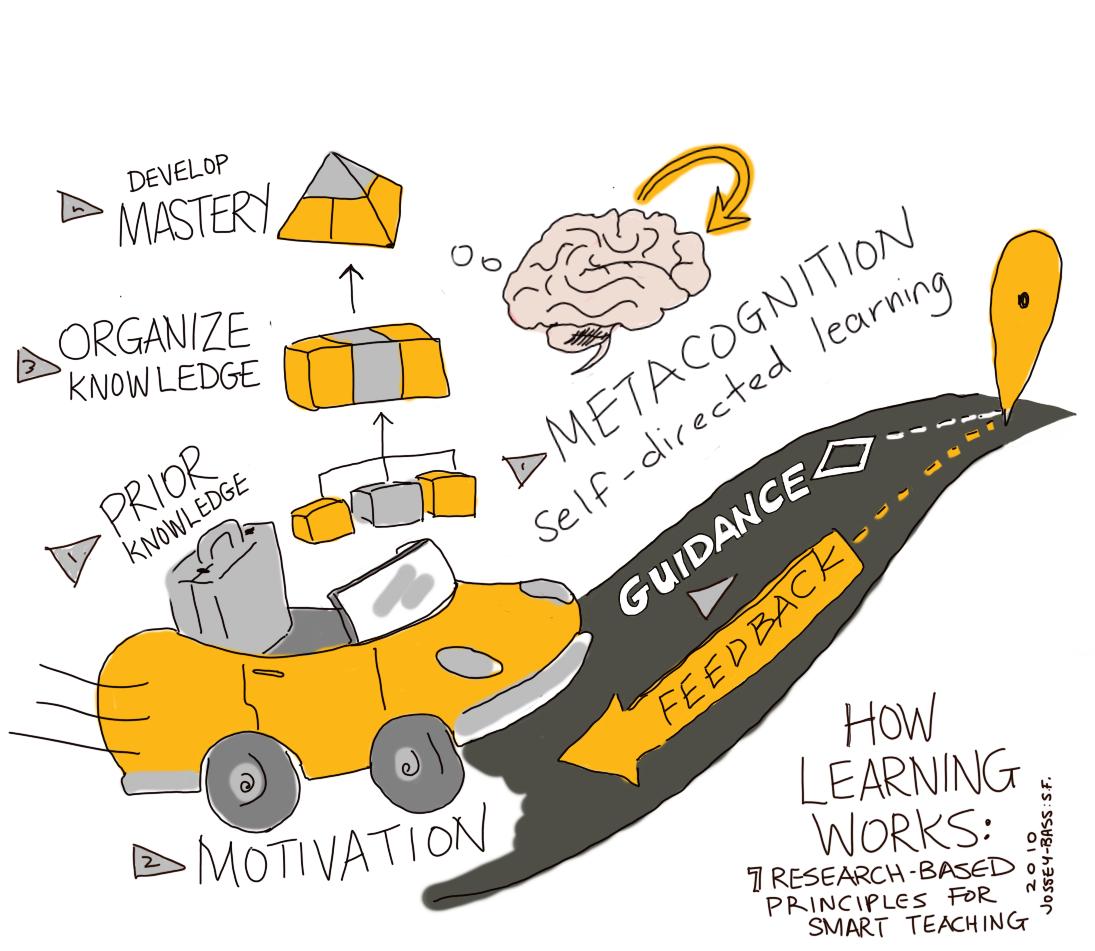 DEVELOP
MASTERY
3
ORGANIZE
KNOWLEDGE
1
PRIOR
KNOWLEDGE
METACOGNITION
self-directed learning
GUIDANCE
FEEDBACK
2
MOTIVATION
HOW
LEARNING
WORKS:
7 RESEARCH-BASED
PRINCIPLES FOR
SMART TEACHING
2010
JOSSEY-BASS: S.F.